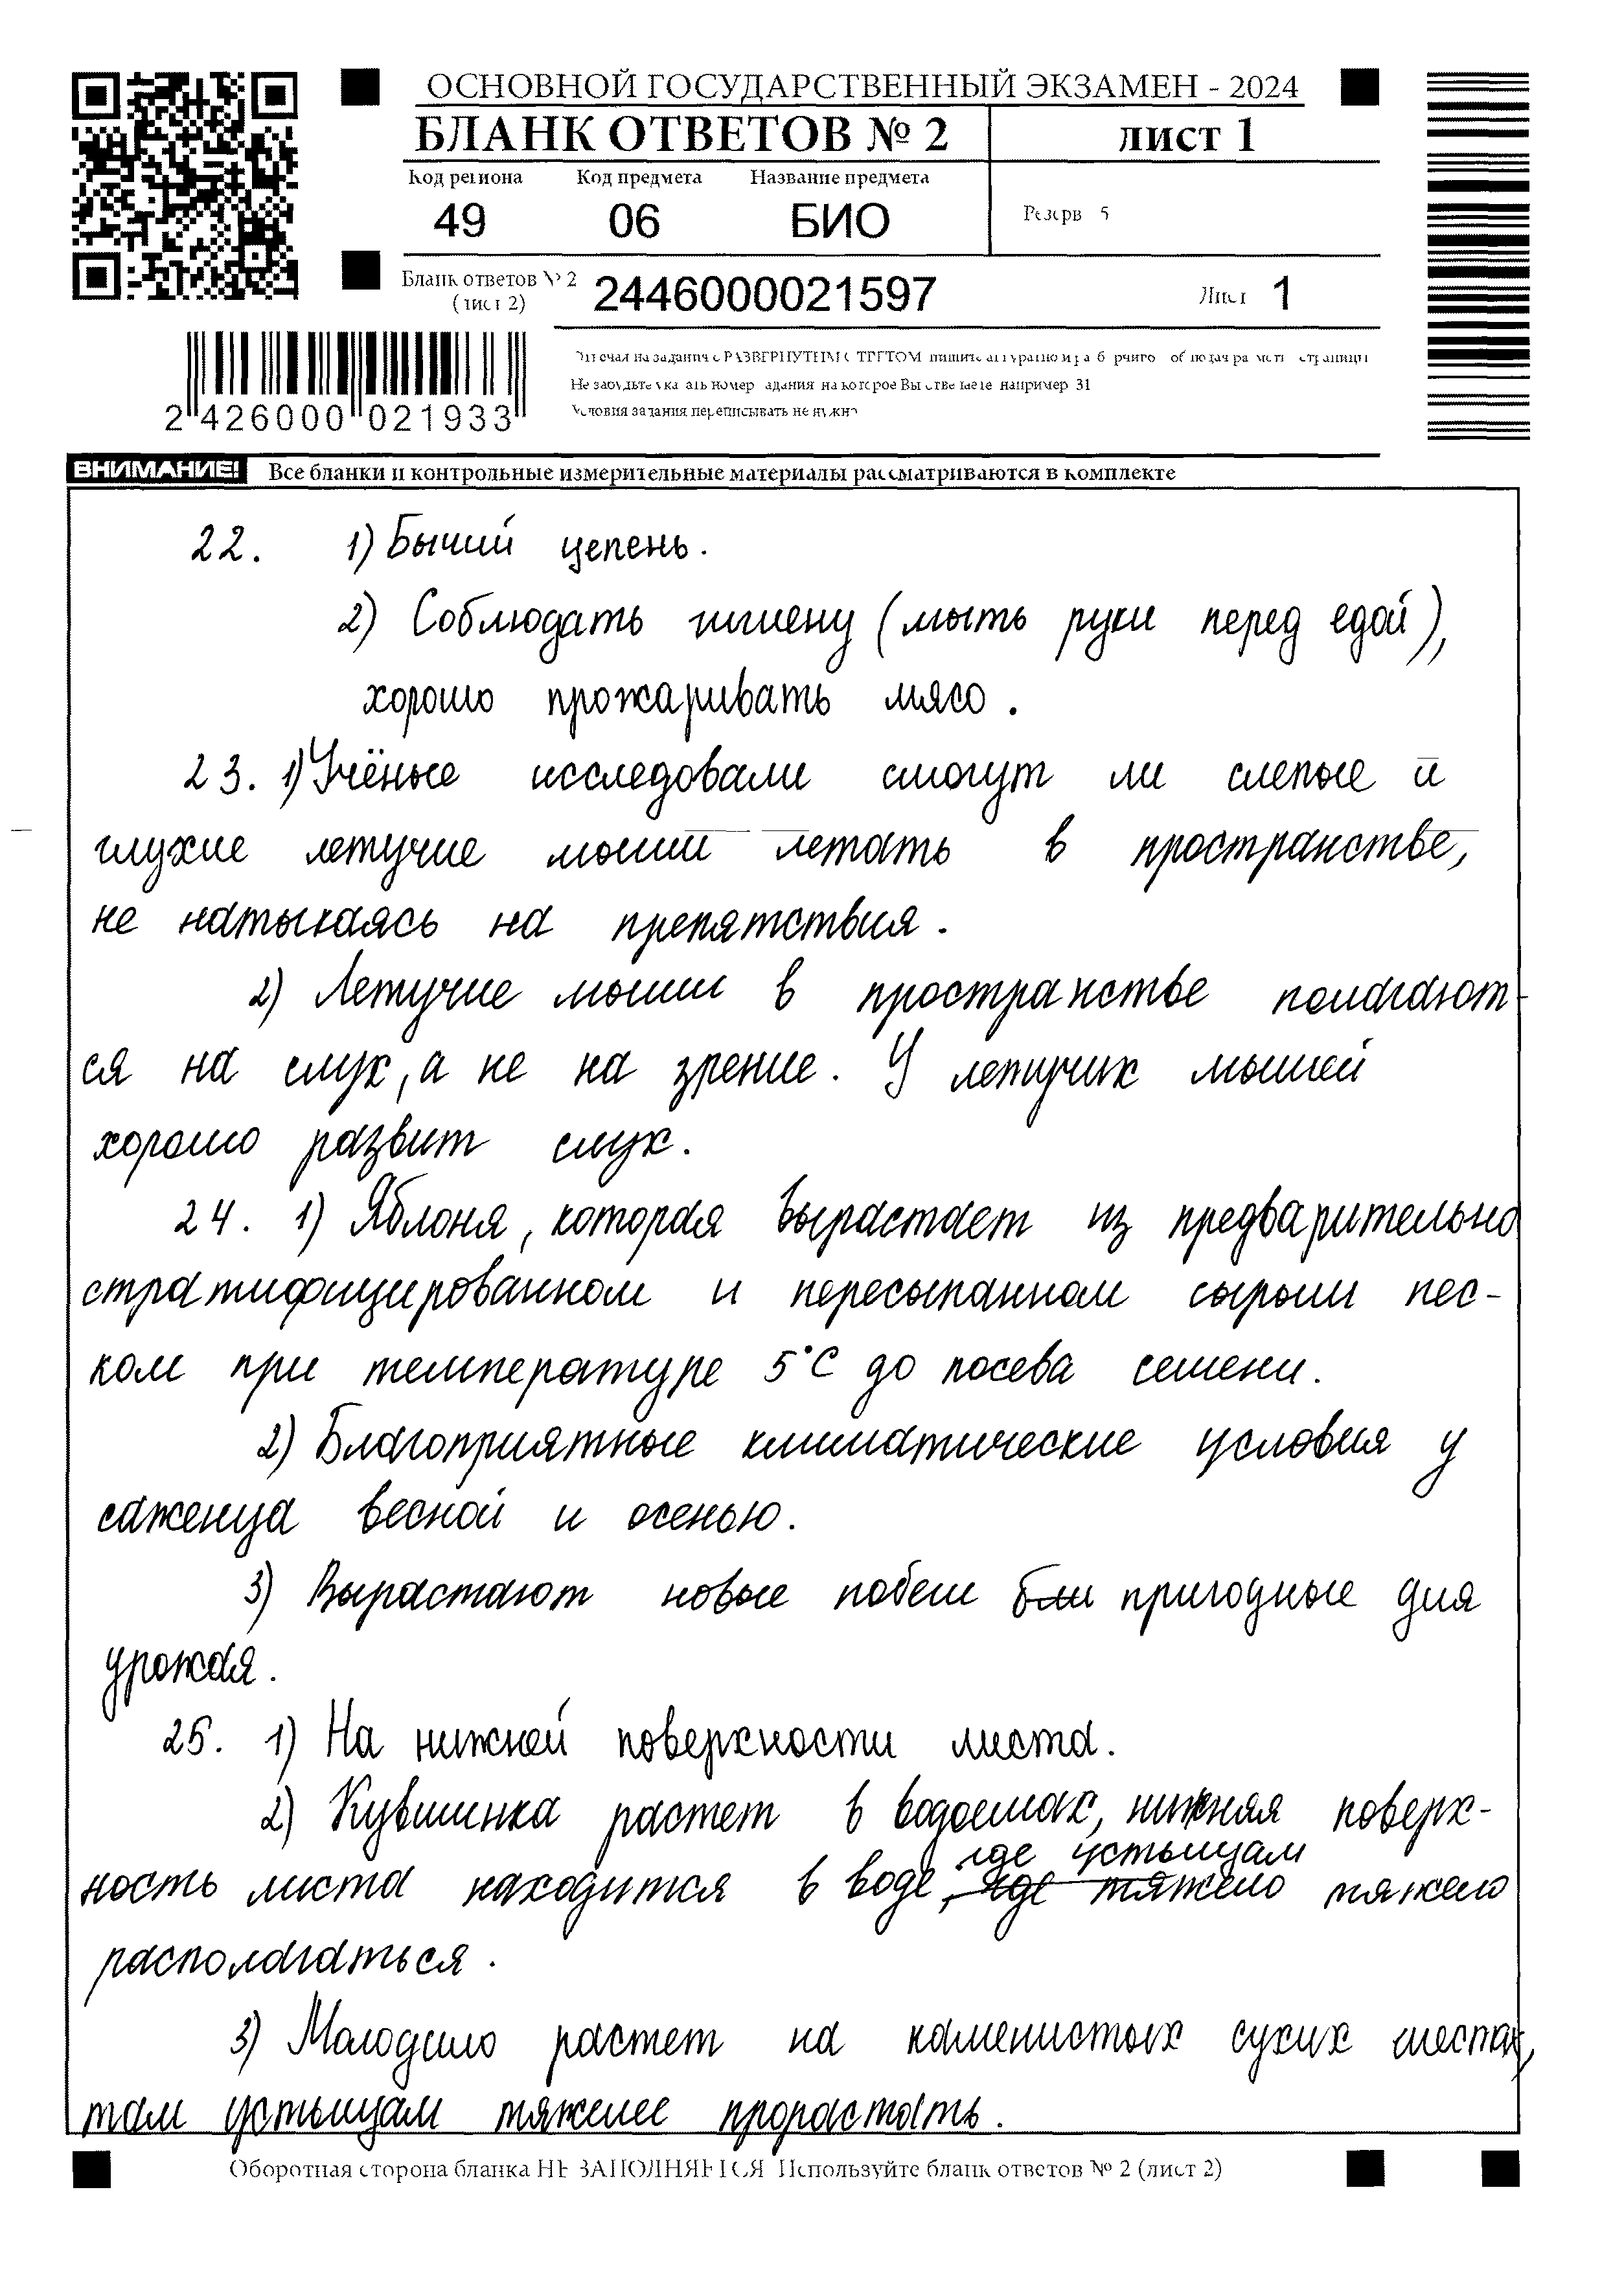 ОСНОВНОЙ ГОСУДАРСТВЕННЫЙ ЭКЗАМЕН - 2024
БЛАНК ОТВЕТОВ № 2
ЛИСТ 1
Код региона Код предмета Название предмета
49 06 БИО
Резерв 5
Бланк ответов № 2
(лист 2)
2446000021597
Лист 1
2 426000 021933
Не забудьте указать номер задания на которое Вы отвечаете например 31
Условия задания переписывать не нужно
ВНИМАНИЕ! Все бланки и контрольные измерительные материалы рассматриваются в комплекте
22. 1) Бычий цепень.
2) Соблюдать гигиену (мыть руки перед едой),
хорошо прожаривать мясо.
23. 1) Учёные исследовали смогут ли слепые и
глухие летучие мыши летать в пространстве,
не натыкаясь на препятствия.
2) Летучие мыши в пространстве полагают-
ся на слух, а не на зрение. У летучих мышей
хорошо развит слух.
24. 1) Яблоня, которая вырастает из предварительно
стратифицированном и пересыпанном сырым пес-
ком при температуре 5°С до посева семени.
2) Благоприятные климатические условия у
саженца весной и осенью.
3) Вырастают новые побеги бли пригодные для
урожая.
25. 1) На нижней поверхности листа.
2) Кувшинка растет в водоемах, нижняя поверх-
где устьицам
ность листа находится в воде, где тяжело тяжело
располагаться.
3) Молодило растет на каменистых сухих местах,
там устьицам тяжелее прорастать.
Оборотная сторона бланка НЕ ЗАПОЛНЯЕТСЯ Используйте бланк ответов № 2 (лист 2)